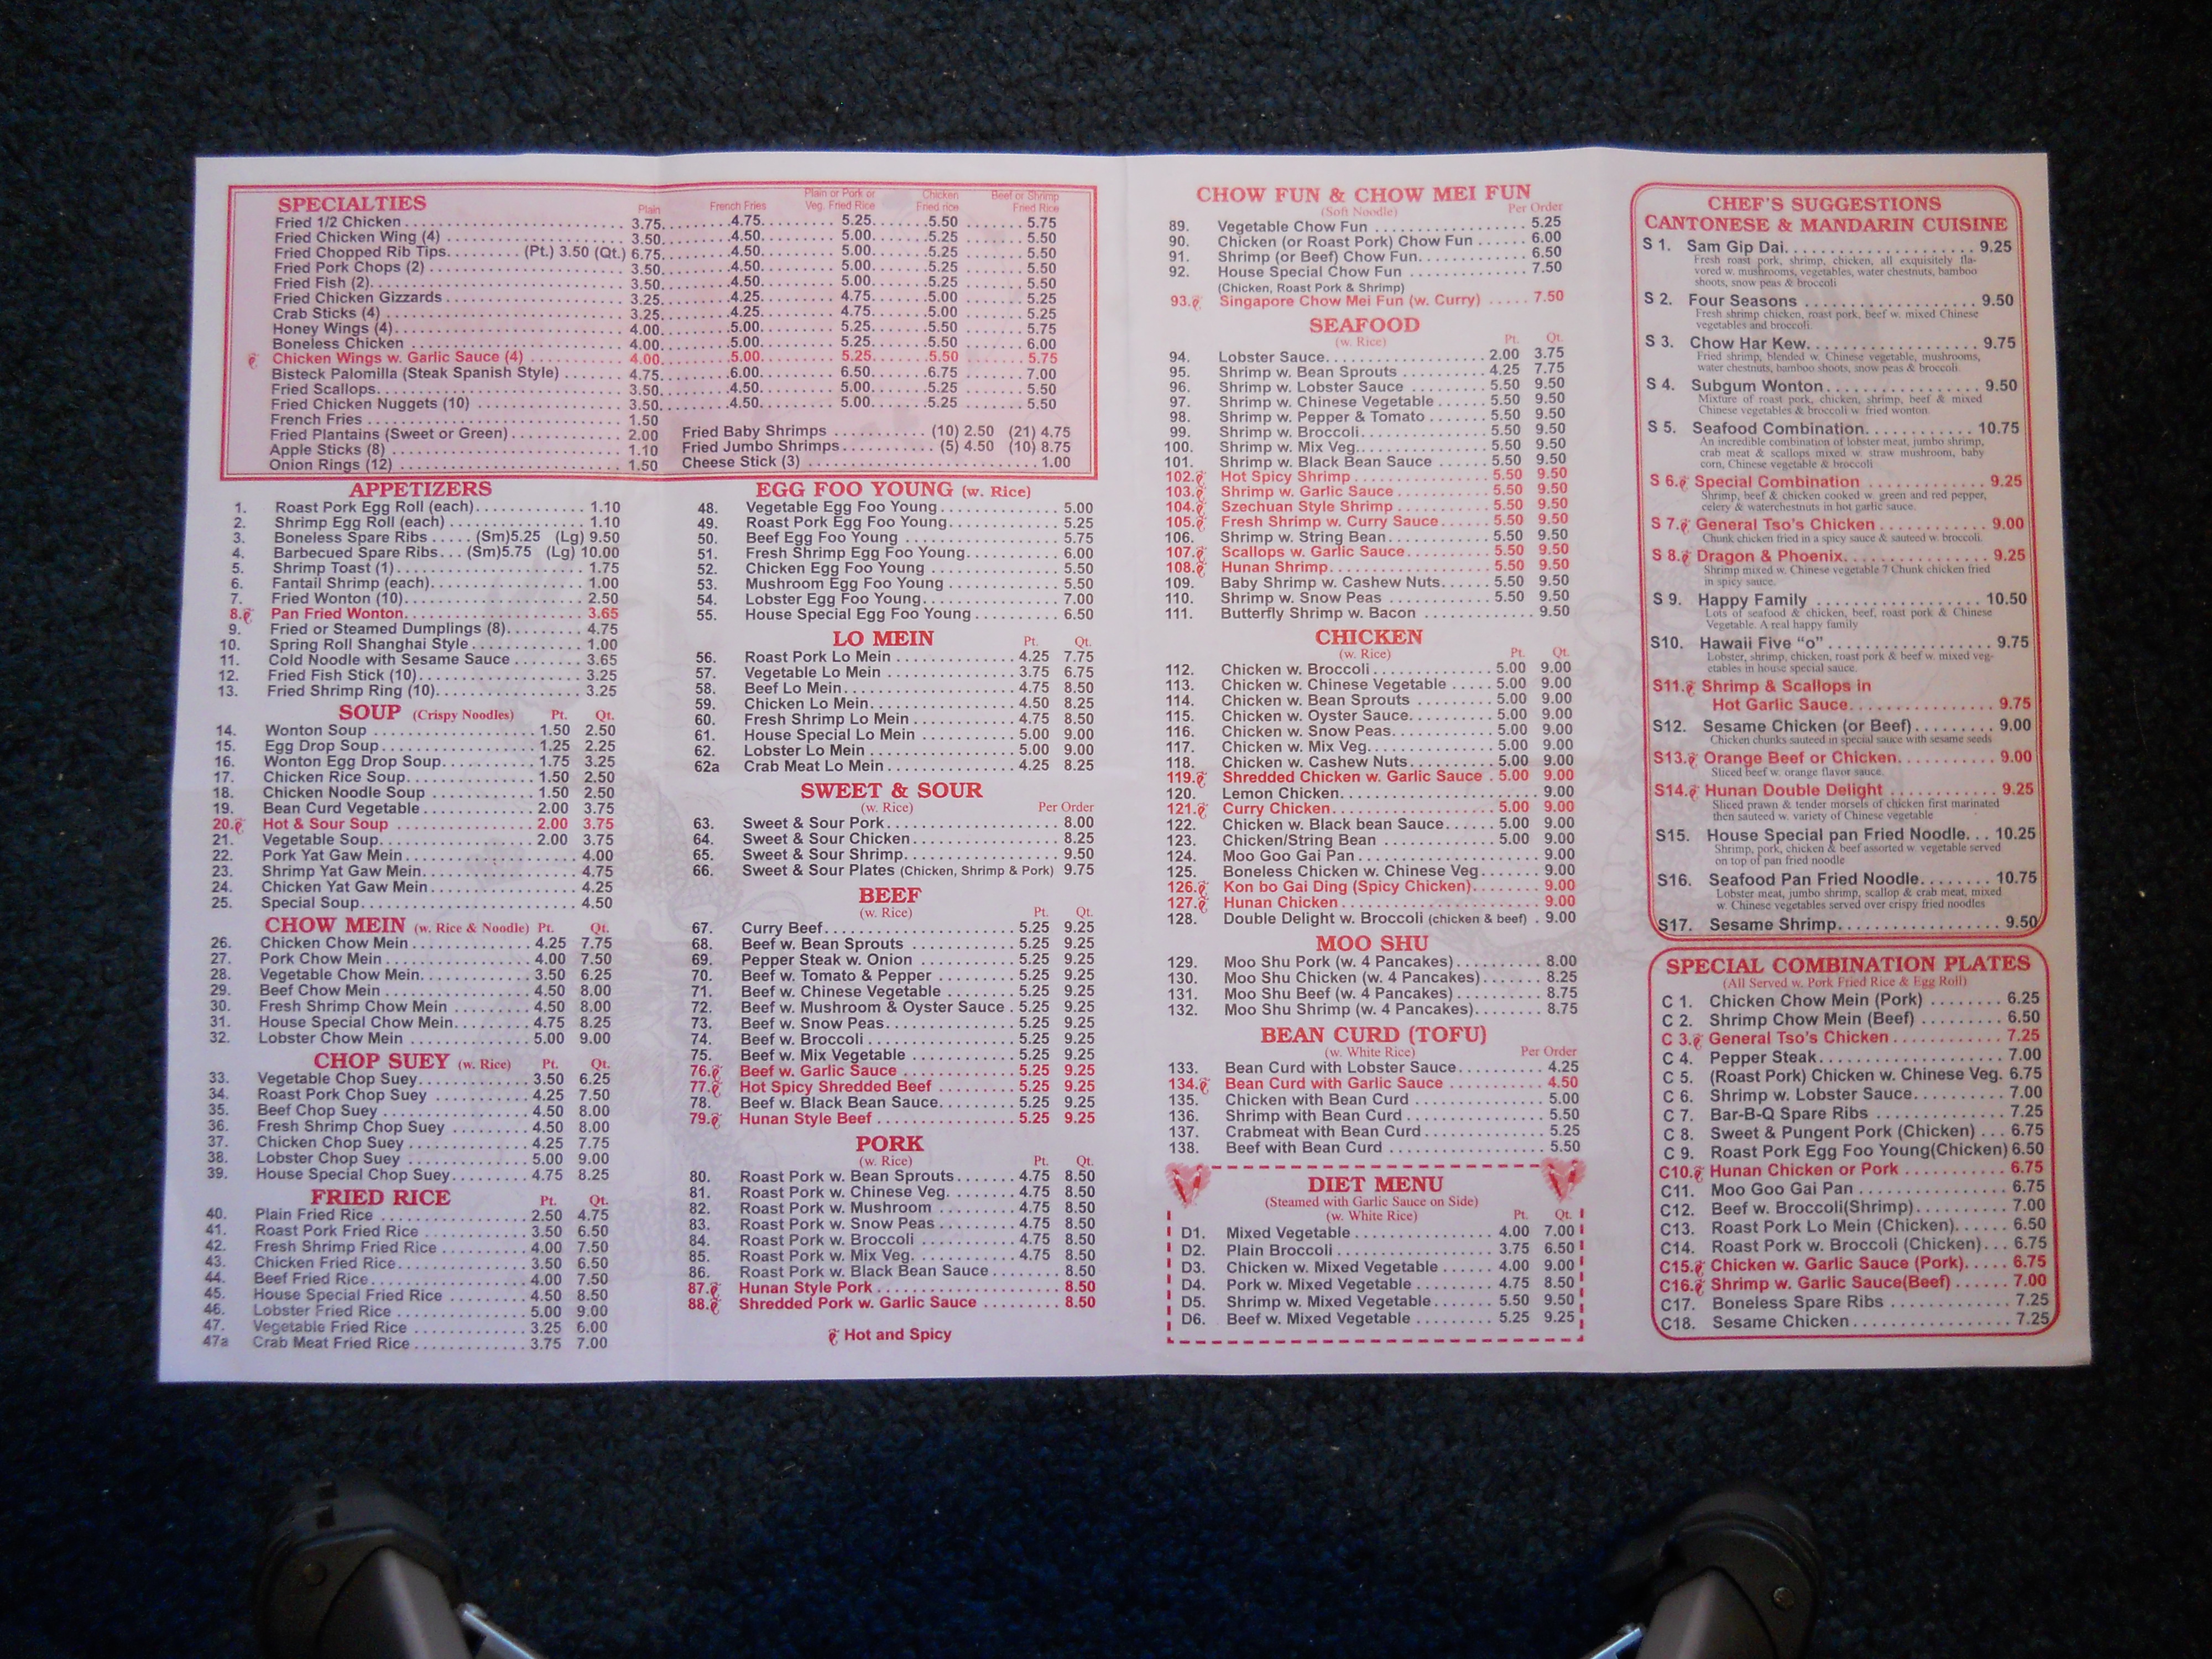 SPECIALTIES
Plain French Fries Plain or Pork or Veg. Fried Rice Chicken Fried rice Beef or Shrimp Fried Rice
Fried 1/2 Chicken 3.75 4.75 5.25 5.50 5.75
Fried Chicken Wing (4) 3.50 4.50 5.00 5.25 5.50
Fried Chopped Rib Tips (Pt.) 3.50 (Qt.) 6.75 4.50 5.00 5.25 5.50
Fried Pork Chops (2) 3.50 4.50 5.00 5.25 5.50
Fried Fish (2) 3.50 4.50 5.00 5.25 5.50
Fried Chicken Gizzards 3.25 4.25 4.75 5.00 5.25
Crab Sticks (4) 3.25 4.25 4.75 5.00 5.25
Honey Wings (4) 4.00 5.00 5.25 5.50 5.75
Boneless Chicken 4.00 5.00 5.25 5.50 6.00
Chicken Wings w. Garlic Sauce (4) 4.00 5.00 5.25 5.50 5.75
Bisteck Palomilla (Steak Spanish Style) 4.75 6.00 6.50 6.75 7.00
Fried Scallops 3.50 4.50 5.00 5.25 5.50
Fried Chicken Nuggets (10) 3.50 4.50 5.00 5.25 5.50
French Fries 1.50
Fried Plantains (Sweet or Green) 2.00
Apple Sticks (8) 1.10
Onion Rings (12) 1.50
Fried Baby Shrimps (10) 2.50 (21) 4.75
Fried Jumbo Shrimps (5) 4.50 (10) 8.75
Cheese Stick (3) 1.00
APPETIZERS
1. Roast Pork Egg Roll (each) 1.10
2. Shrimp Egg Roll (each) 1.10
3. Boneless Spare Ribs (Sm)5.25 (Lg) 9.50
4. Barbecued Spare Ribs (Sm)5.75 (Lg) 10.00
5. Shrimp Toast (1) 1.75
6. Fantail Shrimp (each) 1.00
7. Fried Wonton (10) 2.50
8. Pan Fried Wonton 3.65
9. Fried or Steamed Dumplings (8) 4.75
10. Spring Roll Shanghai Style 1.00
11. Cold Noodle with Sesame Sauce 3.65
12. Fried Fish Stick (10) 3.25
13. Fried Shrimp Ring (10) 3.25
SOUP (Crispy Noodles) Pt. Qt.
14. Wonton Soup 1.50 2.50
15. Egg Drop Soup 1.25 2.25
16. Wonton Egg Drop Soup 1.75 3.25
17. Chicken Rice Soup 1.50 2.50
18. Chicken Noodle Soup 1.50 2.50
19. Bean Curd Vegetable 2.00 3.75
20. Hot & Sour Soup 2.00 3.75
21. Vegetable Soup 2.00 3.75
22. Pork Yat Gaw Mein 4.00
23. Shrimp Yat Gaw Mein 4.75
24. Chicken Yat Gaw Mein 4.25
25. Special Soup 4.50
CHOW MEIN (w. Rice & Noodle) Pt. Qt.
26. Chicken Chow Mein 4.25 7.75
27. Pork Chow Mein 4.00 7.50
28. Vegetable Chow Mein 3.50 6.25
29. Beef Chow Mein 4.50 8.00
30. Fresh Shrimp Chow Mein 4.50 8.00
31. House Special Chow Mein 4.75 8.25
32. Lobster Chow Mein 5.00 9.00
CHOP SUEY (w. Rice) Pt. Qt.
33. Vegetable Chop Suey 3.50 6.25
34. Roast Pork Chop Suey 4.25 7.50
35. Beef Chop Suey 4.50 8.00
36. Fresh Shrimp Chop Suey 4.50 8.00
37. Chicken Chop Suey 4.25 7.75
38. Lobster Chop Suey 5.00 9.00
39. House Special Chop Suey 4.75 8.25
FRIED RICE Pt. Qt.
40. Plain Fried Rice 2.50 4.75
41. Roast Pork Fried Rice 3.50 6.50
42. Fresh Shrimp Fried Rice 4.00 7.50
43. Chicken Fried Rice 3.50 6.50
44. Beef Fried Rice 4.00 7.50
45. House Special Fried Rice 4.50 8.50
46. Lobster Fried Rice 5.00 9.00
47. Vegetable Fried Rice 3.25 6.00
47a Crab Meat Fried Rice 3.75 7.00
EGG FOO YOUNG (w. Rice)
48. Vegetable Egg Foo Young 5.00
49. Roast Pork Egg Foo Young 5.25
50. Beef Egg Foo Young 5.75
51. Fresh Shrimp Egg Foo Young 6.00
52. Chicken Egg Foo Young 5.50
53. Mushroom Egg Foo Young 5.50
54. Lobster Egg Foo Young 7.00
55. House Special Egg Foo Young 6.50
LO MEIN Pt. Qt.
56. Roast Pork Lo Mein 4.25 7.75
57. Vegetable Lo Mein 3.75 6.75
58. Beef Lo Mein 4.75 8.50
59. Chicken Lo Mein 4.50 8.25
60. Fresh Shrimp Lo Mein 4.75 8.50
61. House Special Lo Mein 5.00 9.00
62. Lobster Lo Mein 5.00 9.00
62a Crab Meat Lo Mein 4.25 8.25
SWEET & SOUR
(w. Rice) Per Order
63. Sweet & Sour Pork 8.00
64. Sweet & Sour Chicken 8.25
65. Sweet & Sour Shrimp 9.50
66. Sweet & Sour Plates (Chicken, Shrimp & Pork) 9.75
BEEF
(w. Rice) Pt. Qt.
67. Curry Beef 5.25 9.25
68. Beef w. Bean Sprouts 5.25 9.25
69. Pepper Steak w. Onion 5.25 9.25
70. Beef w. Tomato & Pepper 5.25 9.25
71. Beef w. Chinese Vegetable 5.25 9.25
72. Beef w. Mushroom & Oyster Sauce 5.25 9.25
73. Beef w. Snow Peas 5.25 9.25
74. Beef w. Broccoli 5.25 9.25
75. Beef w. Mix Vegetable 5.25 9.25
76. Beef w. Garlic Sauce 5.25 9.25
77. Hot Spicy Shredded Beef 5.25 9.25
78. Beef w. Black Bean Sauce 5.25 9.25
79. Hunan Style Beef 5.25 9.25
PORK
(w. Rice) Pt. Qt.
80. Roast Pork w. Bean Sprouts 4.75 8.50
81. Roast Pork w. Chinese Veg. 4.75 8.50
82. Roast Pork w. Mushroom 4.75 8.50
83. Roast Pork w. Snow Peas 4.75 8.50
84. Roast Pork w. Broccoli 4.75 8.50
85. Roast Pork w. Mix Veg. 4.75 8.50
86. Roast Pork w. Black Bean Sauce 8.50
87. Hunan Style Pork 8.50
88. Shredded Pork w. Garlic Sauce 8.50
Hot and Spicy
CHOW FUN & CHOW MEI FUN
(Soft Noodle) Per Order
89. Vegetable Chow Fun 5.25
90. Chicken (or Roast Pork) Chow Fun 6.00
91. Shrimp (or Beef) Chow Fun 6.50
92. House Special Chow Fun 7.50
(Chicken, Roast Pork & Shrimp)
93. Singapore Chow Mei Fun (w. Curry) 7.50
SEAFOOD
(w. Rice) Pt. Qt.
94. Lobster Sauce 2.00 3.75
95. Shrimp w. Bean Sprouts 4.25 7.75
96. Shrimp w. Lobster Sauce 5.50 9.50
97. Shrimp w. Chinese Vegetable 5.50 9.50
98. Shrimp w. Pepper & Tomato 5.50 9.50
99. Shrimp w. Broccoli 5.50 9.50
100. Shrimp w. Mix Veg. 5.50 9.50
101. Shrimp w. Black Bean Sauce 5.50 9.50
102. Hot Spicy Shrimp 5.50 9.50
103. Shrimp w. Garlic Sauce 5.50 9.50
104. Szechuan Style Shrimp 5.50 9.50
105. Fresh Shrimp w. Curry Sauce 5.50 9.50
106. Shrimp w. String Bean 5.50 9.50
107. Scallops w. Garlic Sauce 5.50 9.50
108. Hunan Shrimp 5.50 9.50
109. Baby Shrimp w. Cashew Nuts 5.50 9.50
110. Shrimp w. Snow Peas 5.50 9.50
111. Butterfly Shrimp w. Bacon 9.50
CHICKEN
(w. Rice) Pt. Qt.
112. Chicken w. Broccoli 5.00 9.00
113. Chicken w. Chinese Vegetable 5.00 9.00
114. Chicken w. Bean Sprouts 5.00 9.00
115. Chicken w. Oyster Sauce 5.00 9.00
116. Chicken w. Snow Peas 5.00 9.00
117. Chicken w. Mix Veg. 5.00 9.00
118. Chicken w. Cashew Nuts 5.00 9.00
119. Shredded Chicken w. Garlic Sauce 5.00 9.00
120. Lemon Chicken 9.00
121. Curry Chicken 5.00 9.00
122. Chicken w. Black bean Sauce 5.00 9.00
123. Chicken/String Bean 5.00 9.00
124. Moo Goo Gai Pan 9.00
125. Boneless Chicken w. Chinese Veg 9.00
126. Kon bo Gai Ding (Spicy Chicken) 9.00
127. Hunan Chicken 9.00
128. Double Delight w. Broccoli (chicken & beef) 9.00
MOO SHU
129. Moo Shu Pork (w. 4 Pancakes) 8.00
130. Moo Shu Chicken (w. 4 Pancakes) 8.25
131. Moo Shu Beef (w. 4 Pancakes) 8.75
132. Moo Shu Shrimp (w. 4 Pancakes) 8.75
BEAN CURD (TOFU)
(w. White Rice) Per Order
133. Bean Curd with Lobster Sauce 4.25
134. Bean Curd with Garlic Sauce 4.50
135. Chicken with Bean Curd 5.00
136. Shrimp with Bean Curd 5.50
137. Crabmeat with Bean Curd 5.25
138. Beef with Bean Curd 5.50
DIET MENU
(Steamed with Garlic Sauce on Side)
(w. White Rice) Pt. Qt.
D1. Mixed Vegetable 4.00 7.00
D2. Plain Broccoli 3.75 6.50
D3. Chicken w. Mixed Vegetable 4.00 9.00
D4. Pork w. Mixed Vegetable 4.75 8.50
D5. Shrimp w. Mixed Vegetable 5.50 9.50
D6. Beef w. Mixed Vegetable 5.25 9.25
CHEF'S SUGGESTIONS
CANTONESE & MANDARIN CUISINE
S 1. Sam Gip Dai 9.25
Fresh roast pork, shrimp, chicken, all exquisitely fla-
vored w. mushrooms, vegetables, water chestnuts, bamboo
shoots, snow peas & broccoli
S 2. Four Seasons 9.50
Fresh shrimp chicken, roast pork, beef w. mixed Chinese
vegetables and broccoli.
S 3. Chow Har Kew 9.75
Fried shrimp, blended w. Chinese vegetable, mushrooms,
water chestnuts, bamboo shoots, snow peas & broccoli.
S 4. Subgum Wonton 9.50
Mixture of roast pork, chicken, shrimp, beef & mixed
Chinese vegetables & broccoli w. fried wonton.
S 5. Seafood Combination 10.75
An incredible combination of lobster meat, jumbo shrimp,
crab meat & scallops mixed w. straw mushroom, baby
corn, Chinese vegetable & broccoli
S 6. Special Combination 9.25
Shrimp, beef & chicken cooked w. green and red pepper,
celery & waterchestnuts in hot garlic sauce.
S 7. General Tso's Chicken 9.00
Chunk chicken fried in a spicy sauce & sauteed w. broccoli.
S 8. Dragon & Phoenix 9.25
Shrimp mixed w. Chinese vegetable 7 Chunk chicken fried
in spicy sauce.
S 9. Happy Family 10.50
Lots of seafood & chicken, beef, roast pork & Chinese
Vegetable. A real happy family
S10. Hawaii Five "o" 9.75
Lobster, shrimp, chicken, roast pork & beef w. mixed veg-
etables in house special sauce.
S11. Shrimp & Scallops in
Hot Garlic Sauce 9.75
S12. Sesame Chicken (or Beef) 9.00
Chicken chunks sauteed in special sauce with sesame seeds
S13. Orange Beef or Chicken 9.00
Sliced beef w. orange flavor sauce.
S14. Hunan Double Delight 9.25
Sliced prawn & tender morsels of chicken first marinated
then sauteed w. variety of Chinese vegetable
S15. House Special pan Fried Noodle 10.25
Shrimp, pork, chicken & beef assorted w. vegetable served
on top of pan fried noodle
S16. Seafood Pan Fried Noodle 10.75
Lobster meat, jumbo shrimp, scallop & crab meat, mixed
w. Chinese vegetables served over crispy fried noodles
S17. Sesame Shrimp 9.50
SPECIAL COMBINATION PLATES
(All Served w. Pork Fried Rice & Egg Roll)
C 1. Chicken Chow Mein (Pork) 6.25
C 2. Shrimp Chow Mein (Beef) 6.50
C 3. General Tso's Chicken 7.25
C 4. Pepper Steak 7.00
C 5. (Roast Pork) Chicken w. Chinese Veg. 6.75
C 6. Shrimp w. Lobster Sauce 7.00
C 7. Bar-B-Q Spare Ribs 7.25
C 8. Sweet & Pungent Pork (Chicken) 6.75
C 9. Roast Pork Egg Foo Young(Chicken) 6.50
C10. Hunan Chicken or Pork 6.75
C11. Moo Goo Gai Pan 6.75
C12. Beef w. Broccoli(Shrimp) 7.00
C13. Roast Pork Lo Mein (Chicken) 6.50
C14. Roast Pork w. Broccoli (Chicken) 6.75
C15. Chicken w. Garlic Sauce (Pork) 6.75
C16. Shrimp w. Garlic Sauce(Beef) 7.00
C17. Boneless Spare Ribs 7.25
C18. Sesame Chicken 7.25